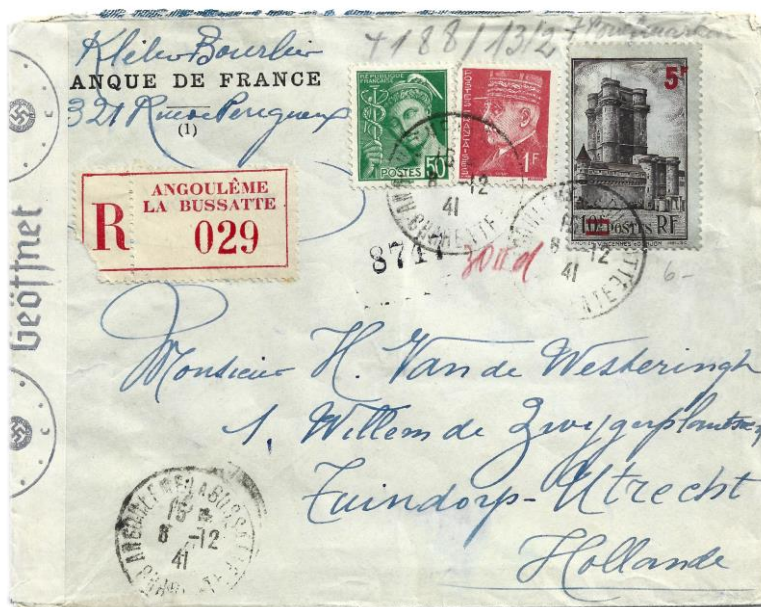 Kléber Bourlier
+188/13/2
ANQUE DE FRANCE
321 Rue de Perigueux
(1)
REPUBLIQUE FRANÇAISE
50
POSTES
1F
5F
POSTES RF
VINCENNES
R
ANGOULÊME
LA BUSSATTE
029
15
8 -12
41
8 -12
41
8711
30
6-
Geöffnet
Monsieur H. Van de Westeringh
1, Willem de Zwijgerplantsoen
Tuindorp-Utrecht
Hollande
ANGOULEME LA BUSSATTE
15
8 -12
41